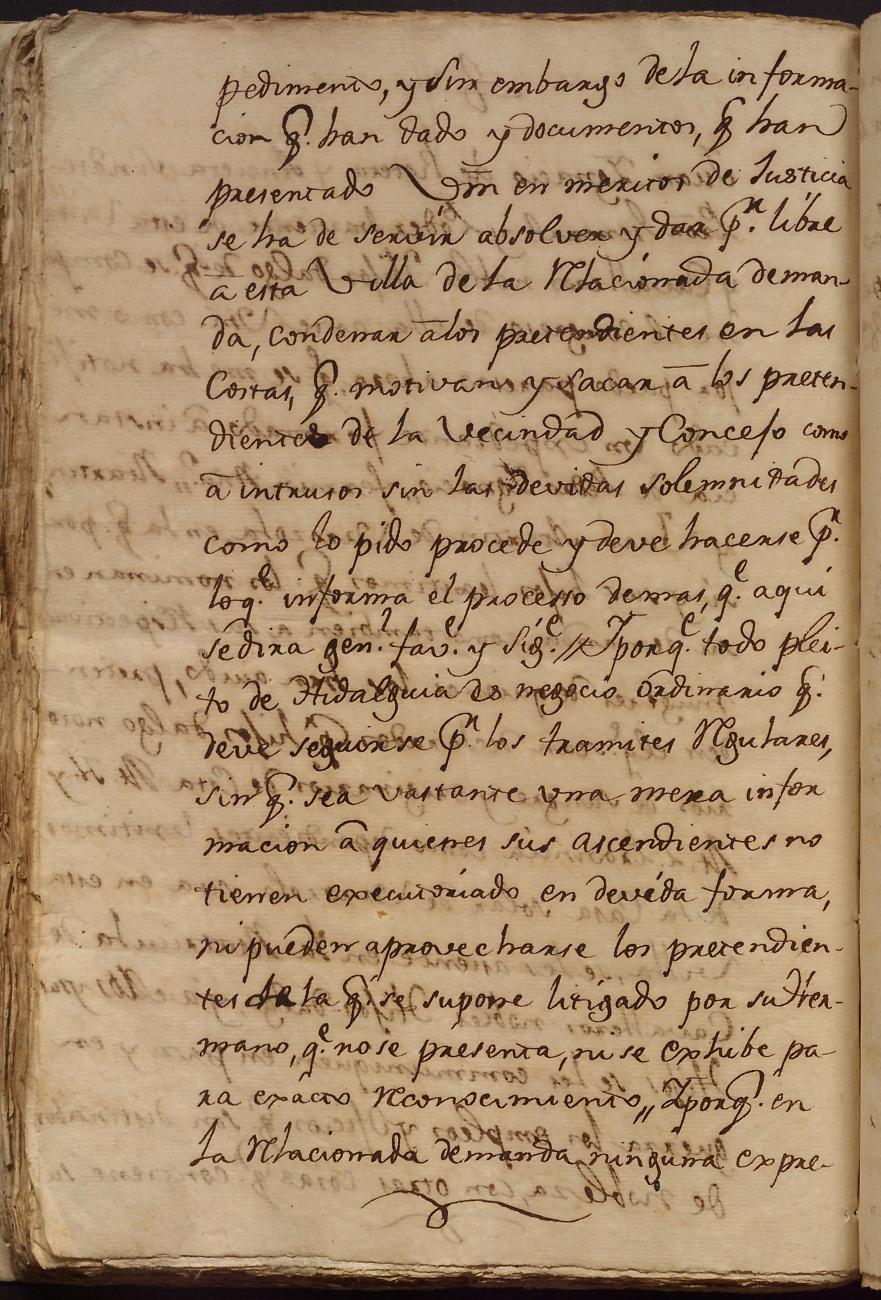 pedimento, y sin embargo de la informa-
cion q. han dado y documentos, q han
presentado Vm en meritos de Justicia
se ha de servir absolver y dar p.r libre
a esta Villa de la Rlacionada deman-
da, condenar à los pretendientes en las
Costas, q. motivan y sacar à los preten-
dientes de la Vecindad y Concejo como
à intrusos sin las devidas solemnidades
como lo pido procede y deve hacerse p.r
lo q.e informa el processo demas, q.e aqui
se dira gen.l fav.e y sig.e // Y porq.e todo plei-
to de Hidalguia es negocio ordinario q.
deve seguirse p.r los tramites Rgulares,
sin q. sea vastante una mera infor
macion à quienes sus ascendientes no
tienen executoriado en devida forma,
ni pueden aprovecharse los pretendien-
tes de la q. se supone litigado por su Her-
mano, q.e no se presenta, ni se exhibe pa-
ra exacto Rconocimiento,, Y porq. en
la Rlacionada demanda ninguna expre-